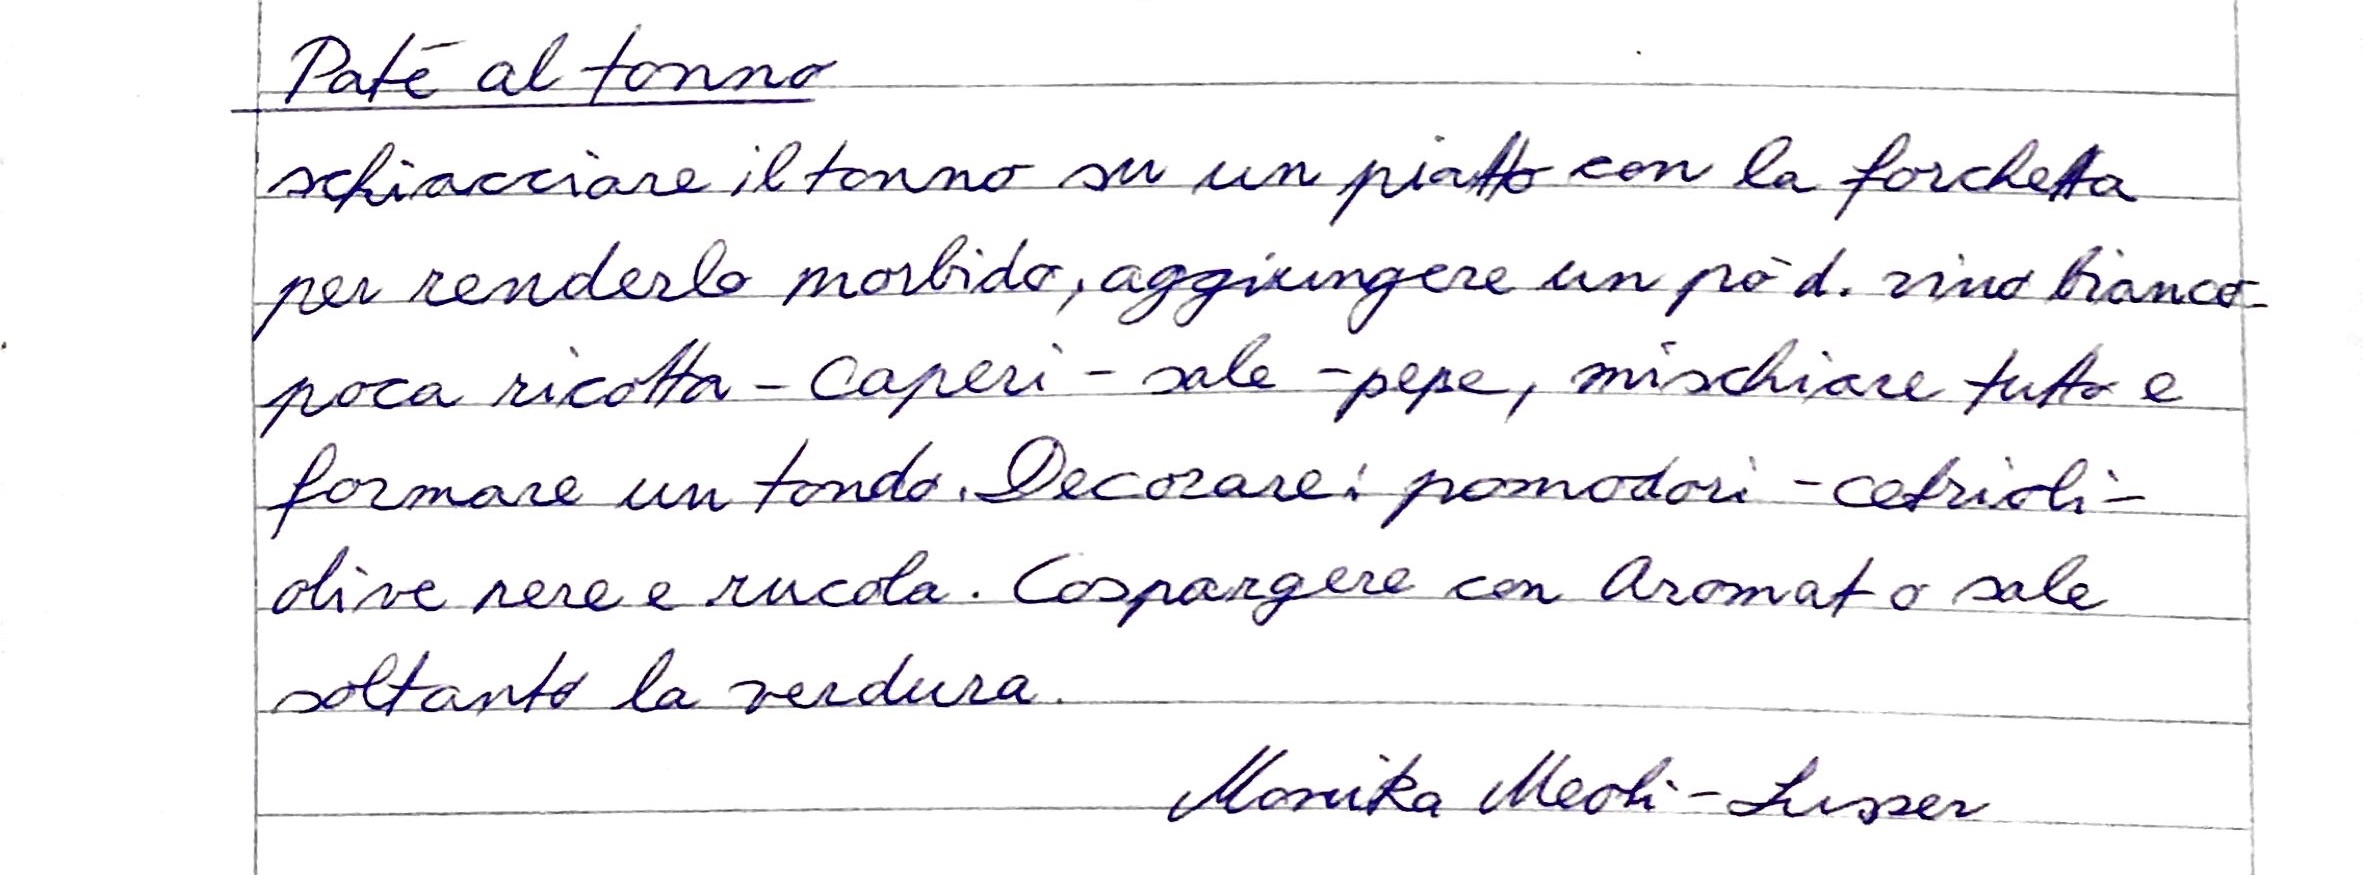 Paté al tonno
schiacciare il tonno su un piatto con la forchetta
per renderlo morbido, aggiungere un pò d. vino bianco-
poca ricotta - Caperi - sale - pepe, mischiare tutto e
formare un tondo. Decorare: pomodori - cetrioli -
olive nere e rucola. Cospargere con Aromat o sale
soltanto la verdura.
Monika Meoli - Lusser